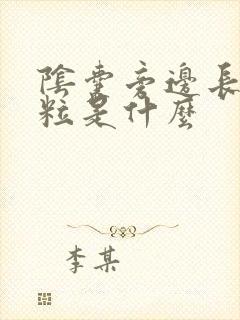 陰囊旁邊長
粒是什麼
李某